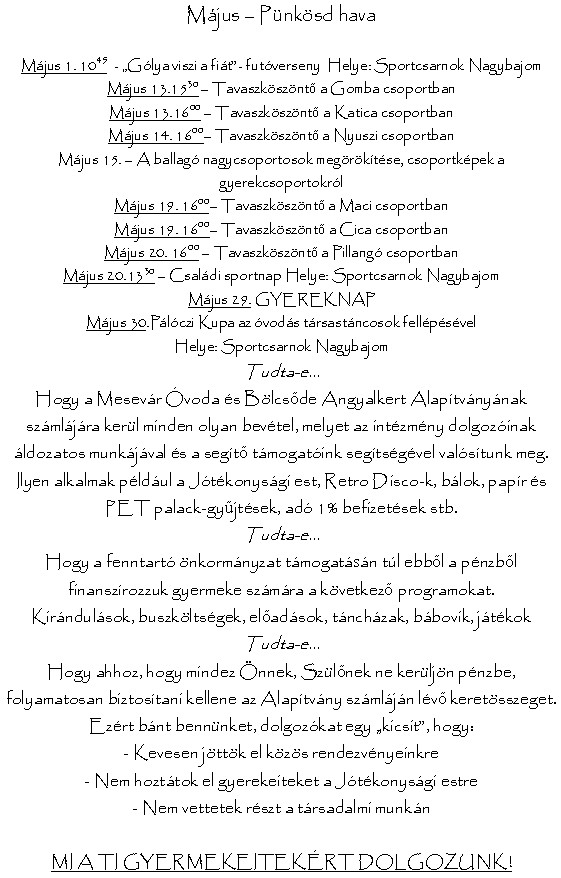 Május – Pünkösd hava
Május 1. 10⁴⁵ - „Gólya viszi a fiát”- futóverseny Helye: Sportcsarnok Nagybajom
Május 13.15³⁰ – Tavaszköszöntő a Gomba csoportban
Május 13.16⁰⁰ – Tavaszköszöntő a Katica csoportban
Május 14. 16⁰⁰ – Tavaszköszöntő a Nyuszi csoportban
Május 15. – A ballagó nagycsoportosok megörökítése, csoportképek a
gyerekcsoportokról
Május 19. 16⁰⁰ – Tavaszköszöntő a Maci csoportban
Május 19. 16⁰⁰ – Tavaszköszöntő a Cica csoportban
Május 20. 16⁰⁰ – Tavaszköszöntő a Pillangó csoportban
Május 20.13³⁰ – Családi sportnap Helye: Sportcsarnok Nagybajom
Május 29. GYEREKNAP
Május 30. Pálóczi Kupa az óvodás társastáncosok fellépésével
Helye: Sportcsarnok Nagybajom
Tudta-e...
Hogy a Mesevár Óvoda és Bölcsőde Angyalkert Alapítványának
számlájára kerül minden olyan bevétel, melyet az intézmény dolgozóinak
áldozatos munkájával és a segítő támogatóink segítségével valósítunk meg.
Ilyen alkalmak például a Jótékonysági est, Retro Disco-k, bálok, papír és
PET palack-gyűjtések, adó 1% befizetések stb.
Tudta-e...
Hogy a fenntartó önkormányzat támogatásán túl ebből a pénzből
finanszírozzuk gyermeke számára a következő programokat.
Kirándulások, buszköltségek, előadások, táncházak, bábovik, játékok
Tudta-e...
Hogy ahhoz, hogy mindez Önnek, Szülőnek ne kerüljön pénzbe,
folyamatosan biztosítani kellene az Alapítvány számláján lévő keretösszeget.
Ezért bánt bennünket, dolgozókat egy „kicsit”, hogy:
- Kevesen jöttök el közös rendezvényeinkre
- Nem hoztátok el gyerekeiteket a Jótékonysági estre
- Nem vettetek részt a társadalmi munkán
MI A TI GYERMEKEITEKÉRT DOLGOZUNK!